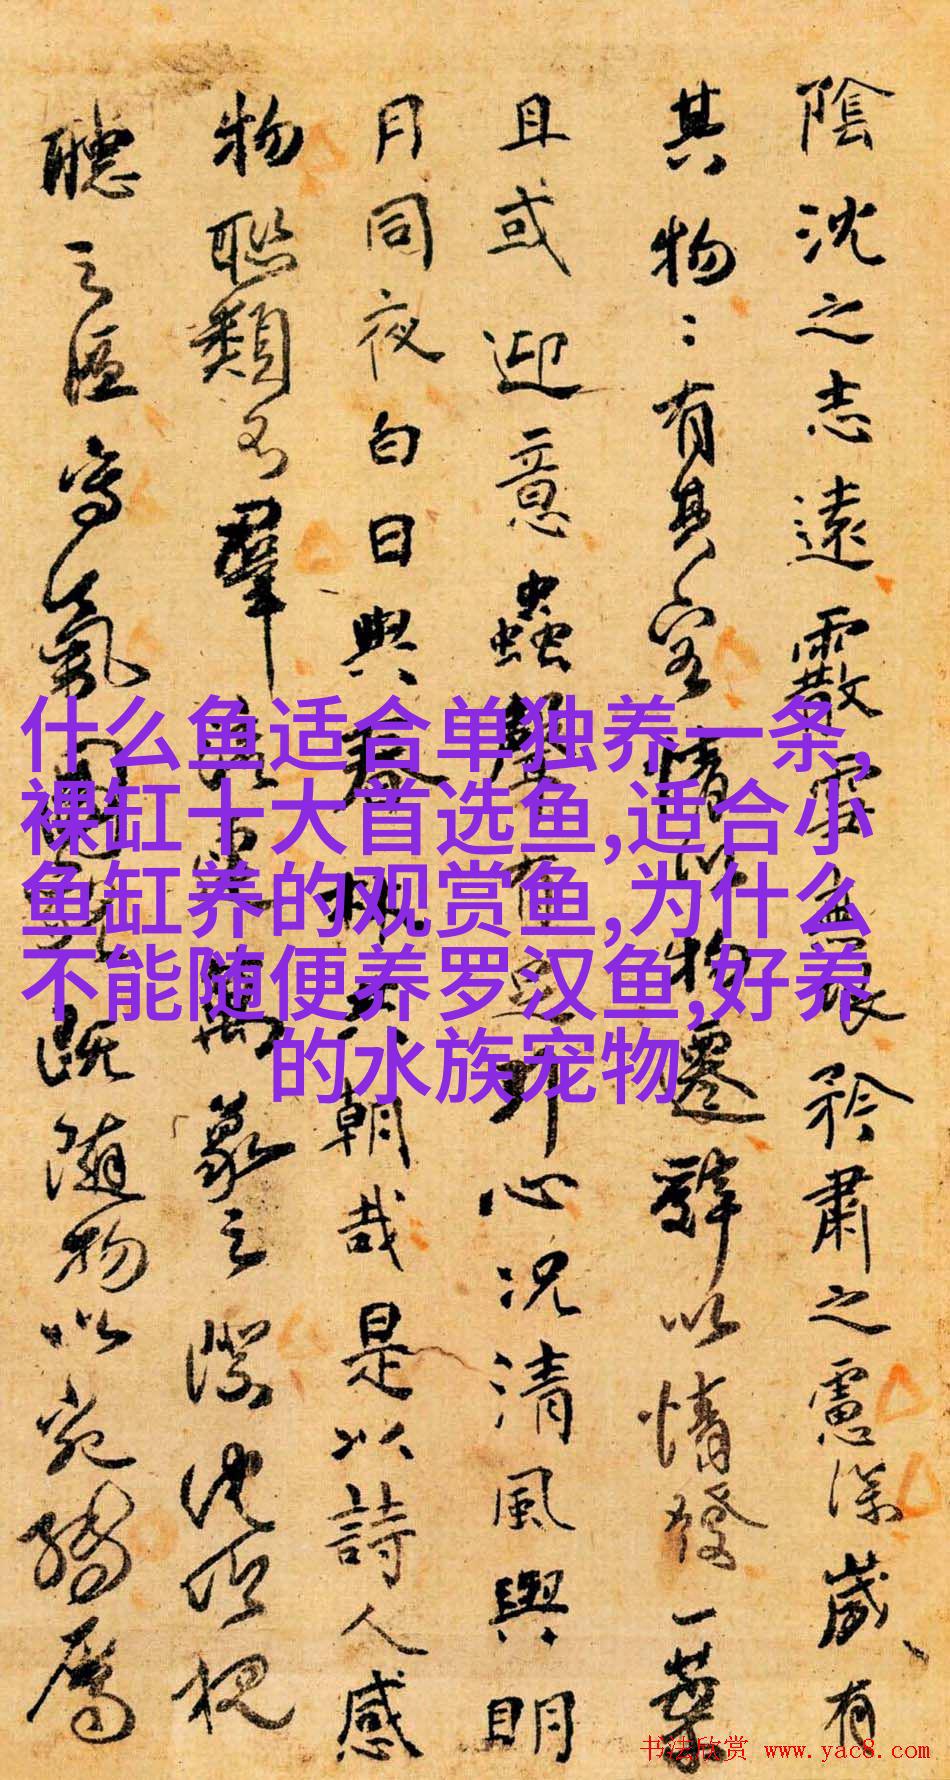 陰沈之志遠霰雪無垠矜肅之慮深歲有
其物〻有其容情以物遷辭以情發一葉
且或迎意蟲聲有足引心況清風與明
月同夜白日與春林共朝哉是以詩人感
物聯類不流連萬象之際沈吟視
聽之區寫氣圖貌既隨物以宛轉屬
什么鱼适合单独养一条,
裸缸十大首选鱼,适合小
鱼缸养的观赏鱼,为什么
不能随便养罗汉鱼,好养
的水族宠物
书法欣赏 www.yac8.com